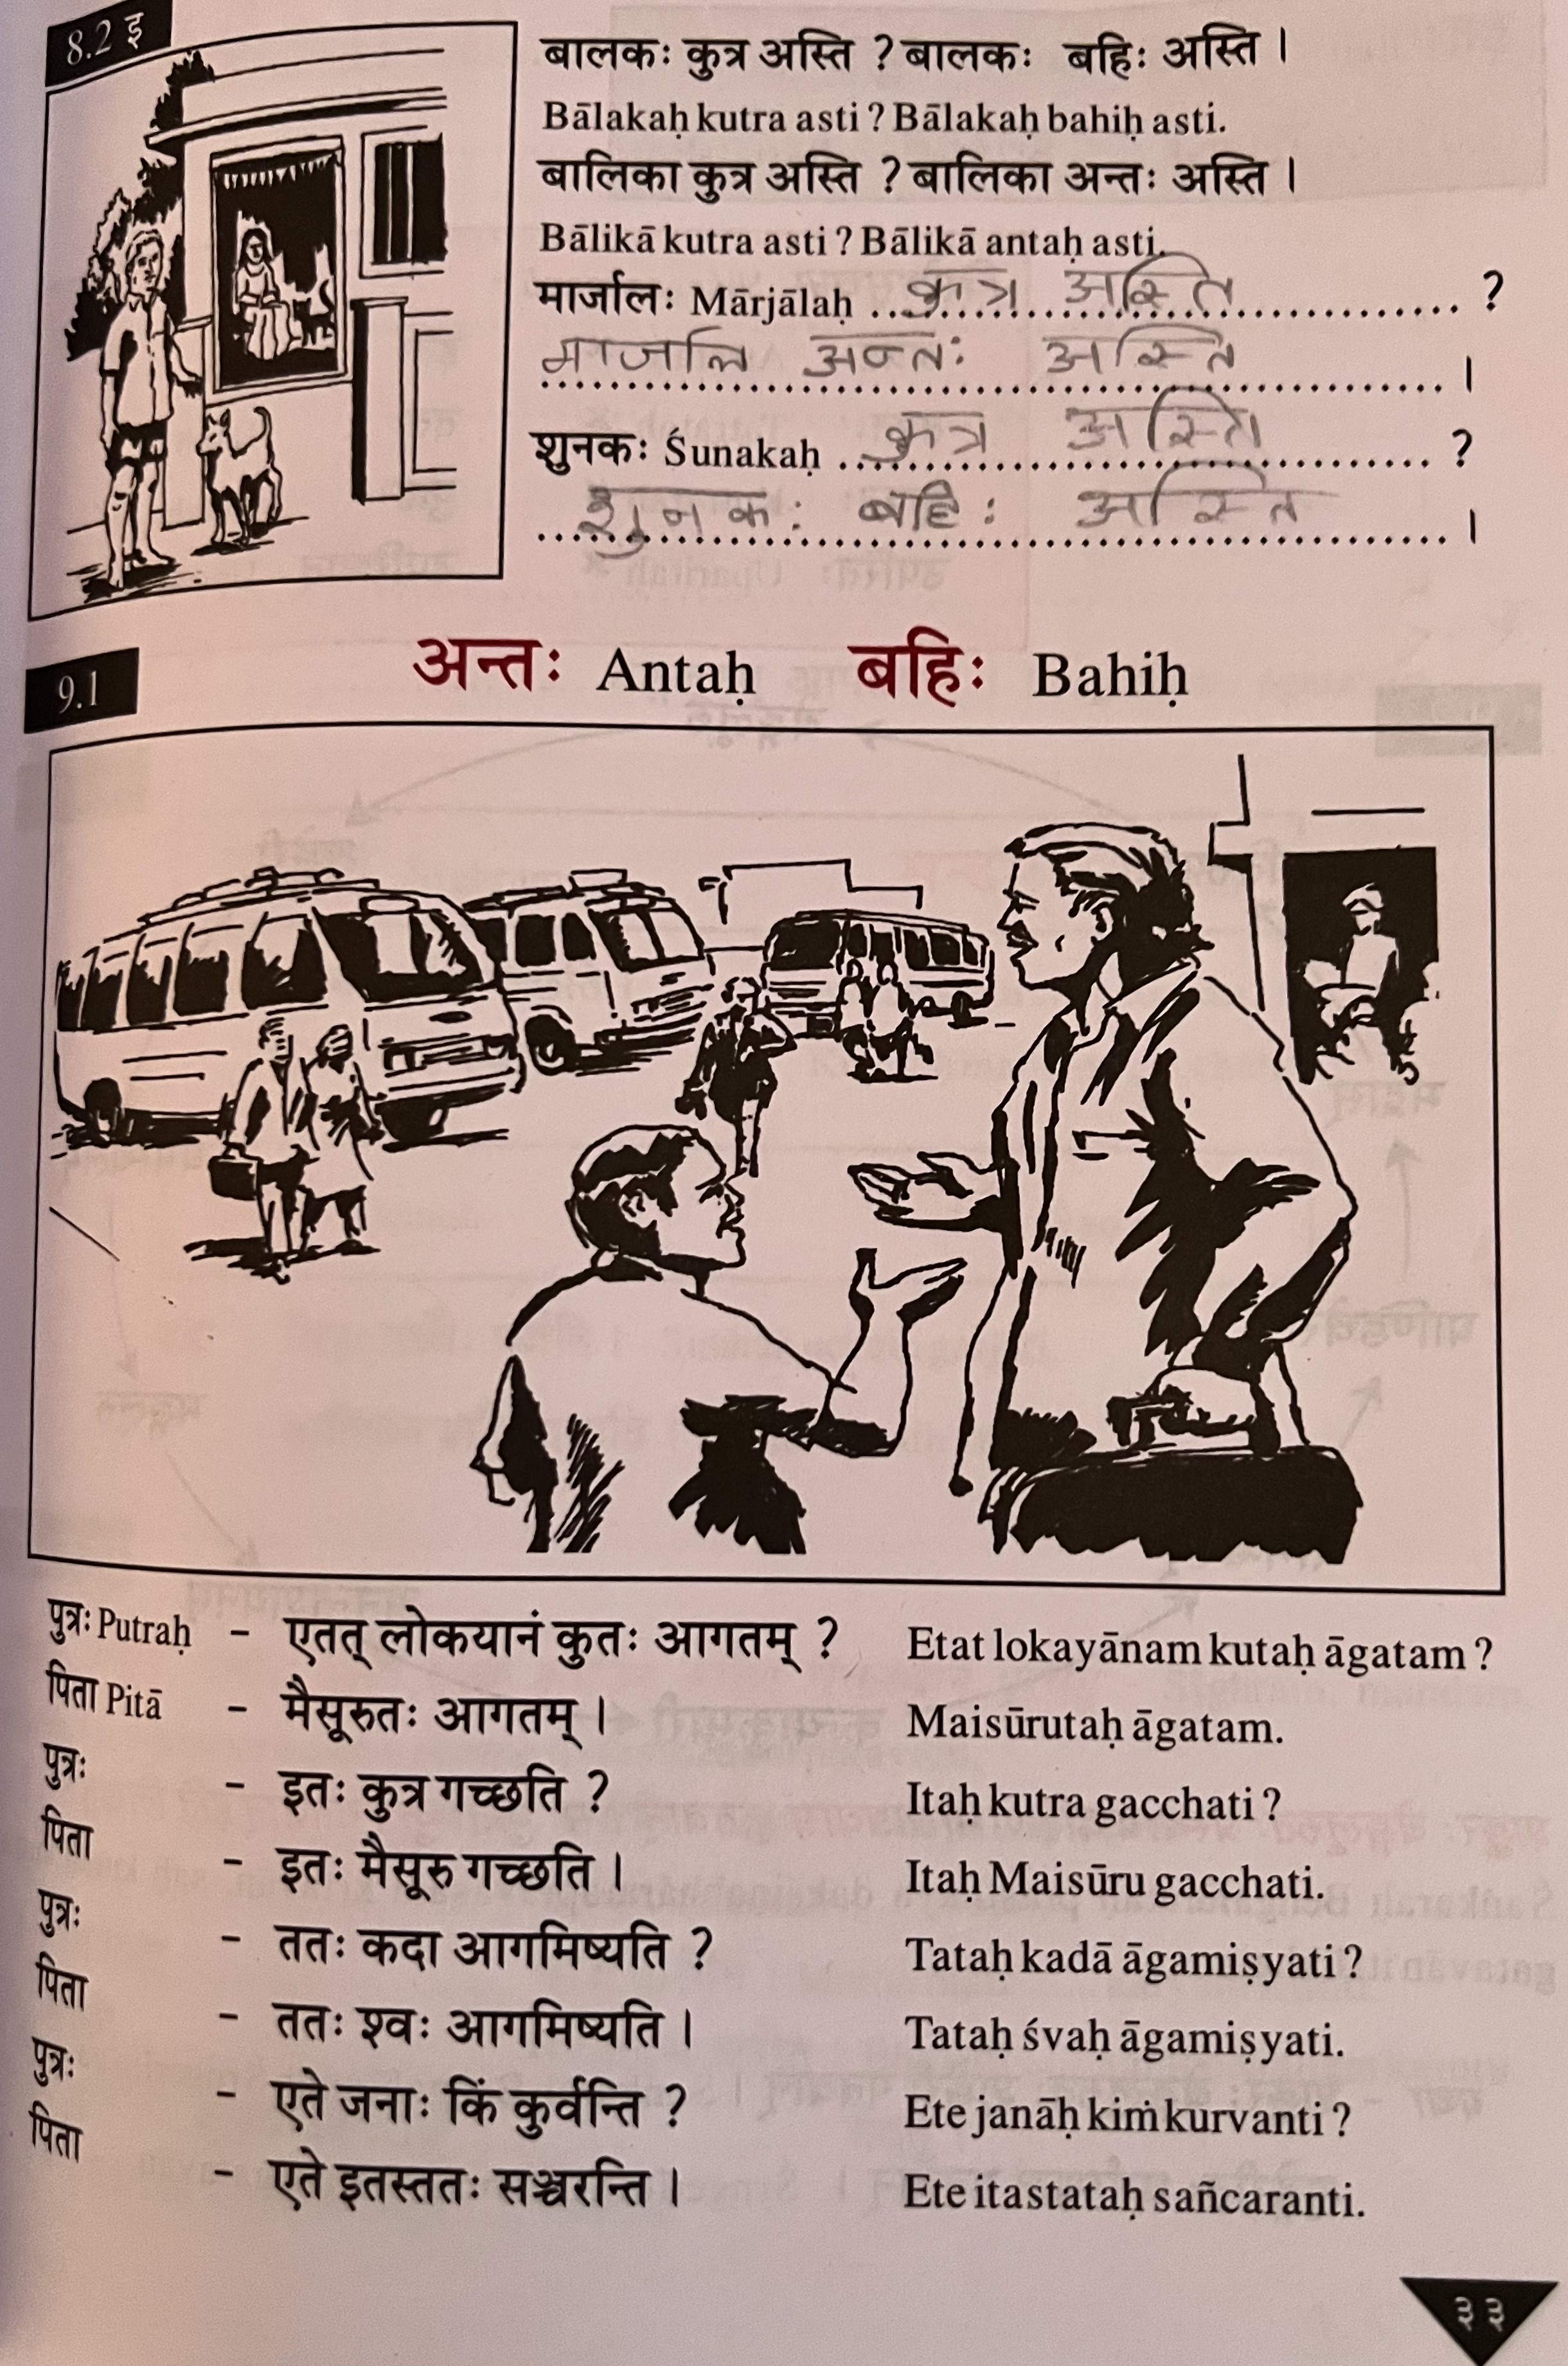 8.2 इ
बालकः कुत्र अस्ति ? बालकः बहिः अस्ति ।
Bālakaḥ kutra asti ? Bālakaḥ bahiḥ asti.
बालिका कुत्र अस्ति ? बालिका अन्तः अस्ति ।
Bālikā kutra asti ? Bālikā antaḥ asti.
मार्जालः Mārjālaḥ कुत्र अस्ति ?
माजलि अन्तः अस्ति ।
शुनकः Śunakaḥ कुत्र अस्ति ?
शुनकः बहिः अस्ति ।
अन्तः Antaḥ बहिः Bahiḥ
9.1
पुत्रः Putraḥ - एतत् लोकयानं कुतः आगतम् ? Etat lokayānam kutaḥ āgatam ?
पिता Pitā - मैसूरुतः आगतम् । Maisūrutaḥ āgatam.
पुत्रः - इतः कुत्र गच्छति ? Itaḥ kutra gacchati ?
पिता - इतः मैसूरु गच्छति । Itaḥ Maisūru gacchati.
पुत्रः - ततः कदा आगमिष्यति ? Tataḥ kadā āgamiṣyati ?
पिता - ततः श्वः आगमिष्यति । Tataḥ śvaḥ āgamiṣyati.
पुत्रः - एते जनाः किं कुर्वन्ति ? Ete janāḥ kiṁ kurvanti ?
पिता - एते इतस्ततः सञ्चरन्ति । Ete itastataḥ sañcaranti.
३३